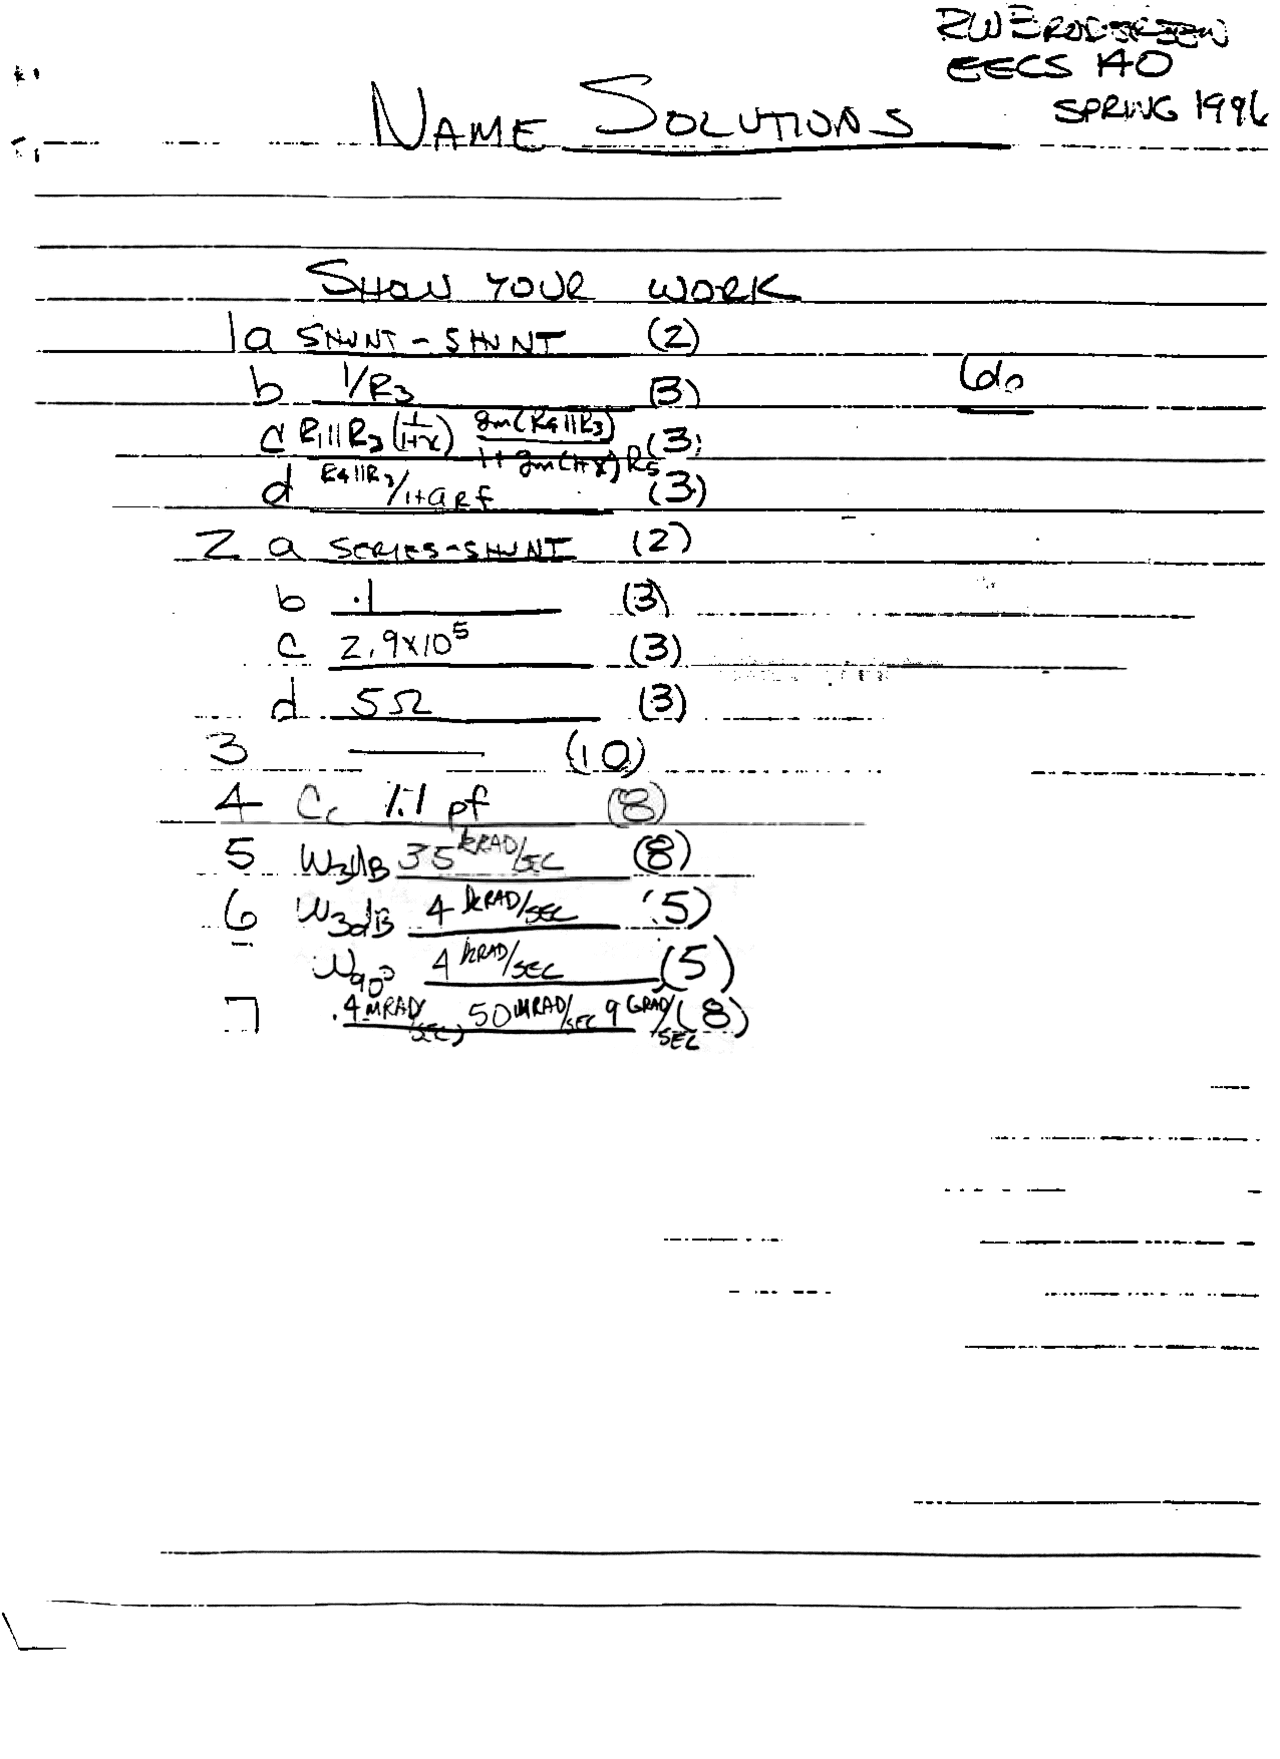 EECS 140
SPRING 1996
NAME SOLUTIONS
SHOW YOUR WORK
1a SHUNT-SHUNT (2)
b 1/R3 (3)
60
c R1||R3 (1/1+x) gm(R4||R3)/1+gm(1+x)R5 (3)
d R4||R3/1+aRf (3)
2 a SERIES-SHUNT (2)
b .1 (3)
c 2.9x10^5 (3)
d 5Ω (3)
3 (10)
4 Cc 1.1 pf (8)
5 W3dB 35 kRAD/SEC (8)
6 W3dB 4 kRAD/SEC (5)
W90° 4 kRAD/SEC (5)
7 .4 MRAD/SEC, 50 MRAD/SEC 9 GRAD/SEC (8)